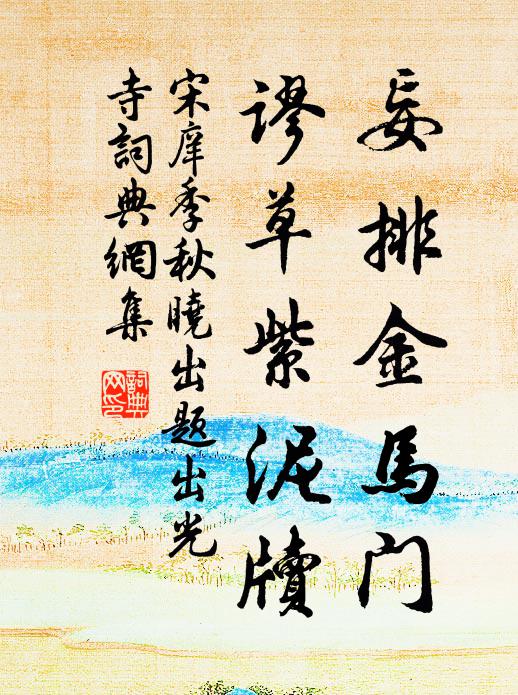 妄排金馬门
谬草紫泥牘
宋庠季秋曉出题出光
寺詞典網集
詞典
网印